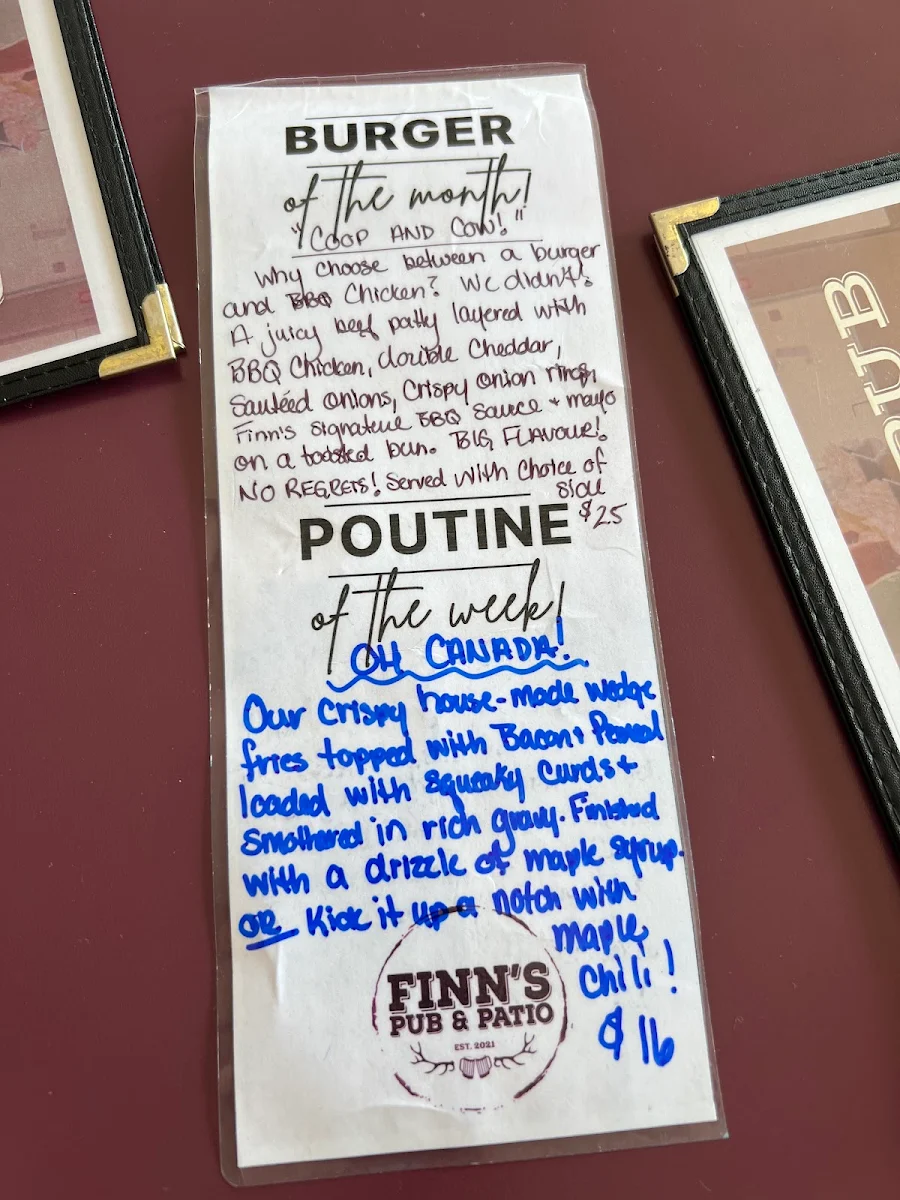 BURGER
of the month!
"COOP AND COW!"
Why choose between a burger
and BBQ Chicken? We didn't!
A juicy beef patty layered with
BBQ Chicken, double Cheddar,
Sautéed onions, Crispy onion rings,
Finn's signature BBQ Sauce + mayo
on a toasted bun. BIG FLAVOUR!
NO REGRETS! Served with Choice of
side
$25
POUTINE
of the week!
OH CANADA!
Our crispy house-made wedge
fries topped with Bacon + Pemeal
loaded with squeaky curds +
smothered in rich gravy. Finished
with a drizzle of maple syrup.
OR Kick it up a notch with
maple
chili!
$16
FINN'S
PUB & PATIO
EST. 2021
PUB